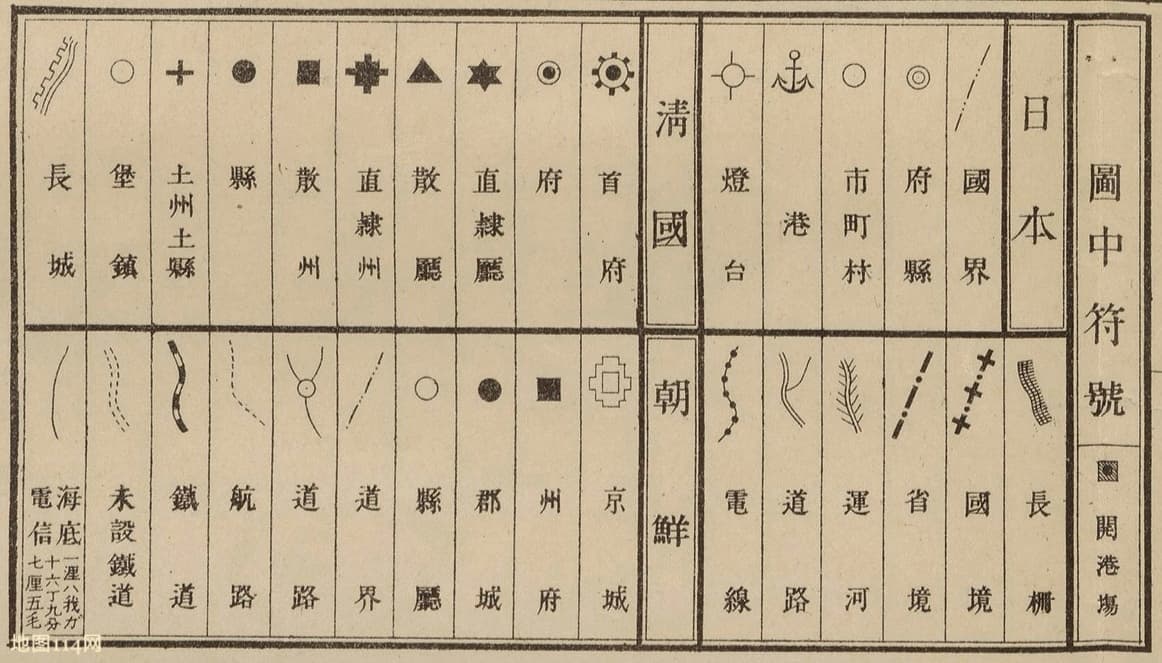 圖中符號
開港場
日本
國界
府縣
市町村
港
燈台
清國
首府
府
直隸廳
散廳
直隸州
散州
縣
土州土縣
堡鎮
長城
長柵
國境
省境
運河
道路
電線
朝鮮
京城
州府
郡城
縣廳
道界
道路
航路
鐵道
未設鐵道
海底電信
一浬ハ我ガ
十六丁九分
七厘五毛
地图114网